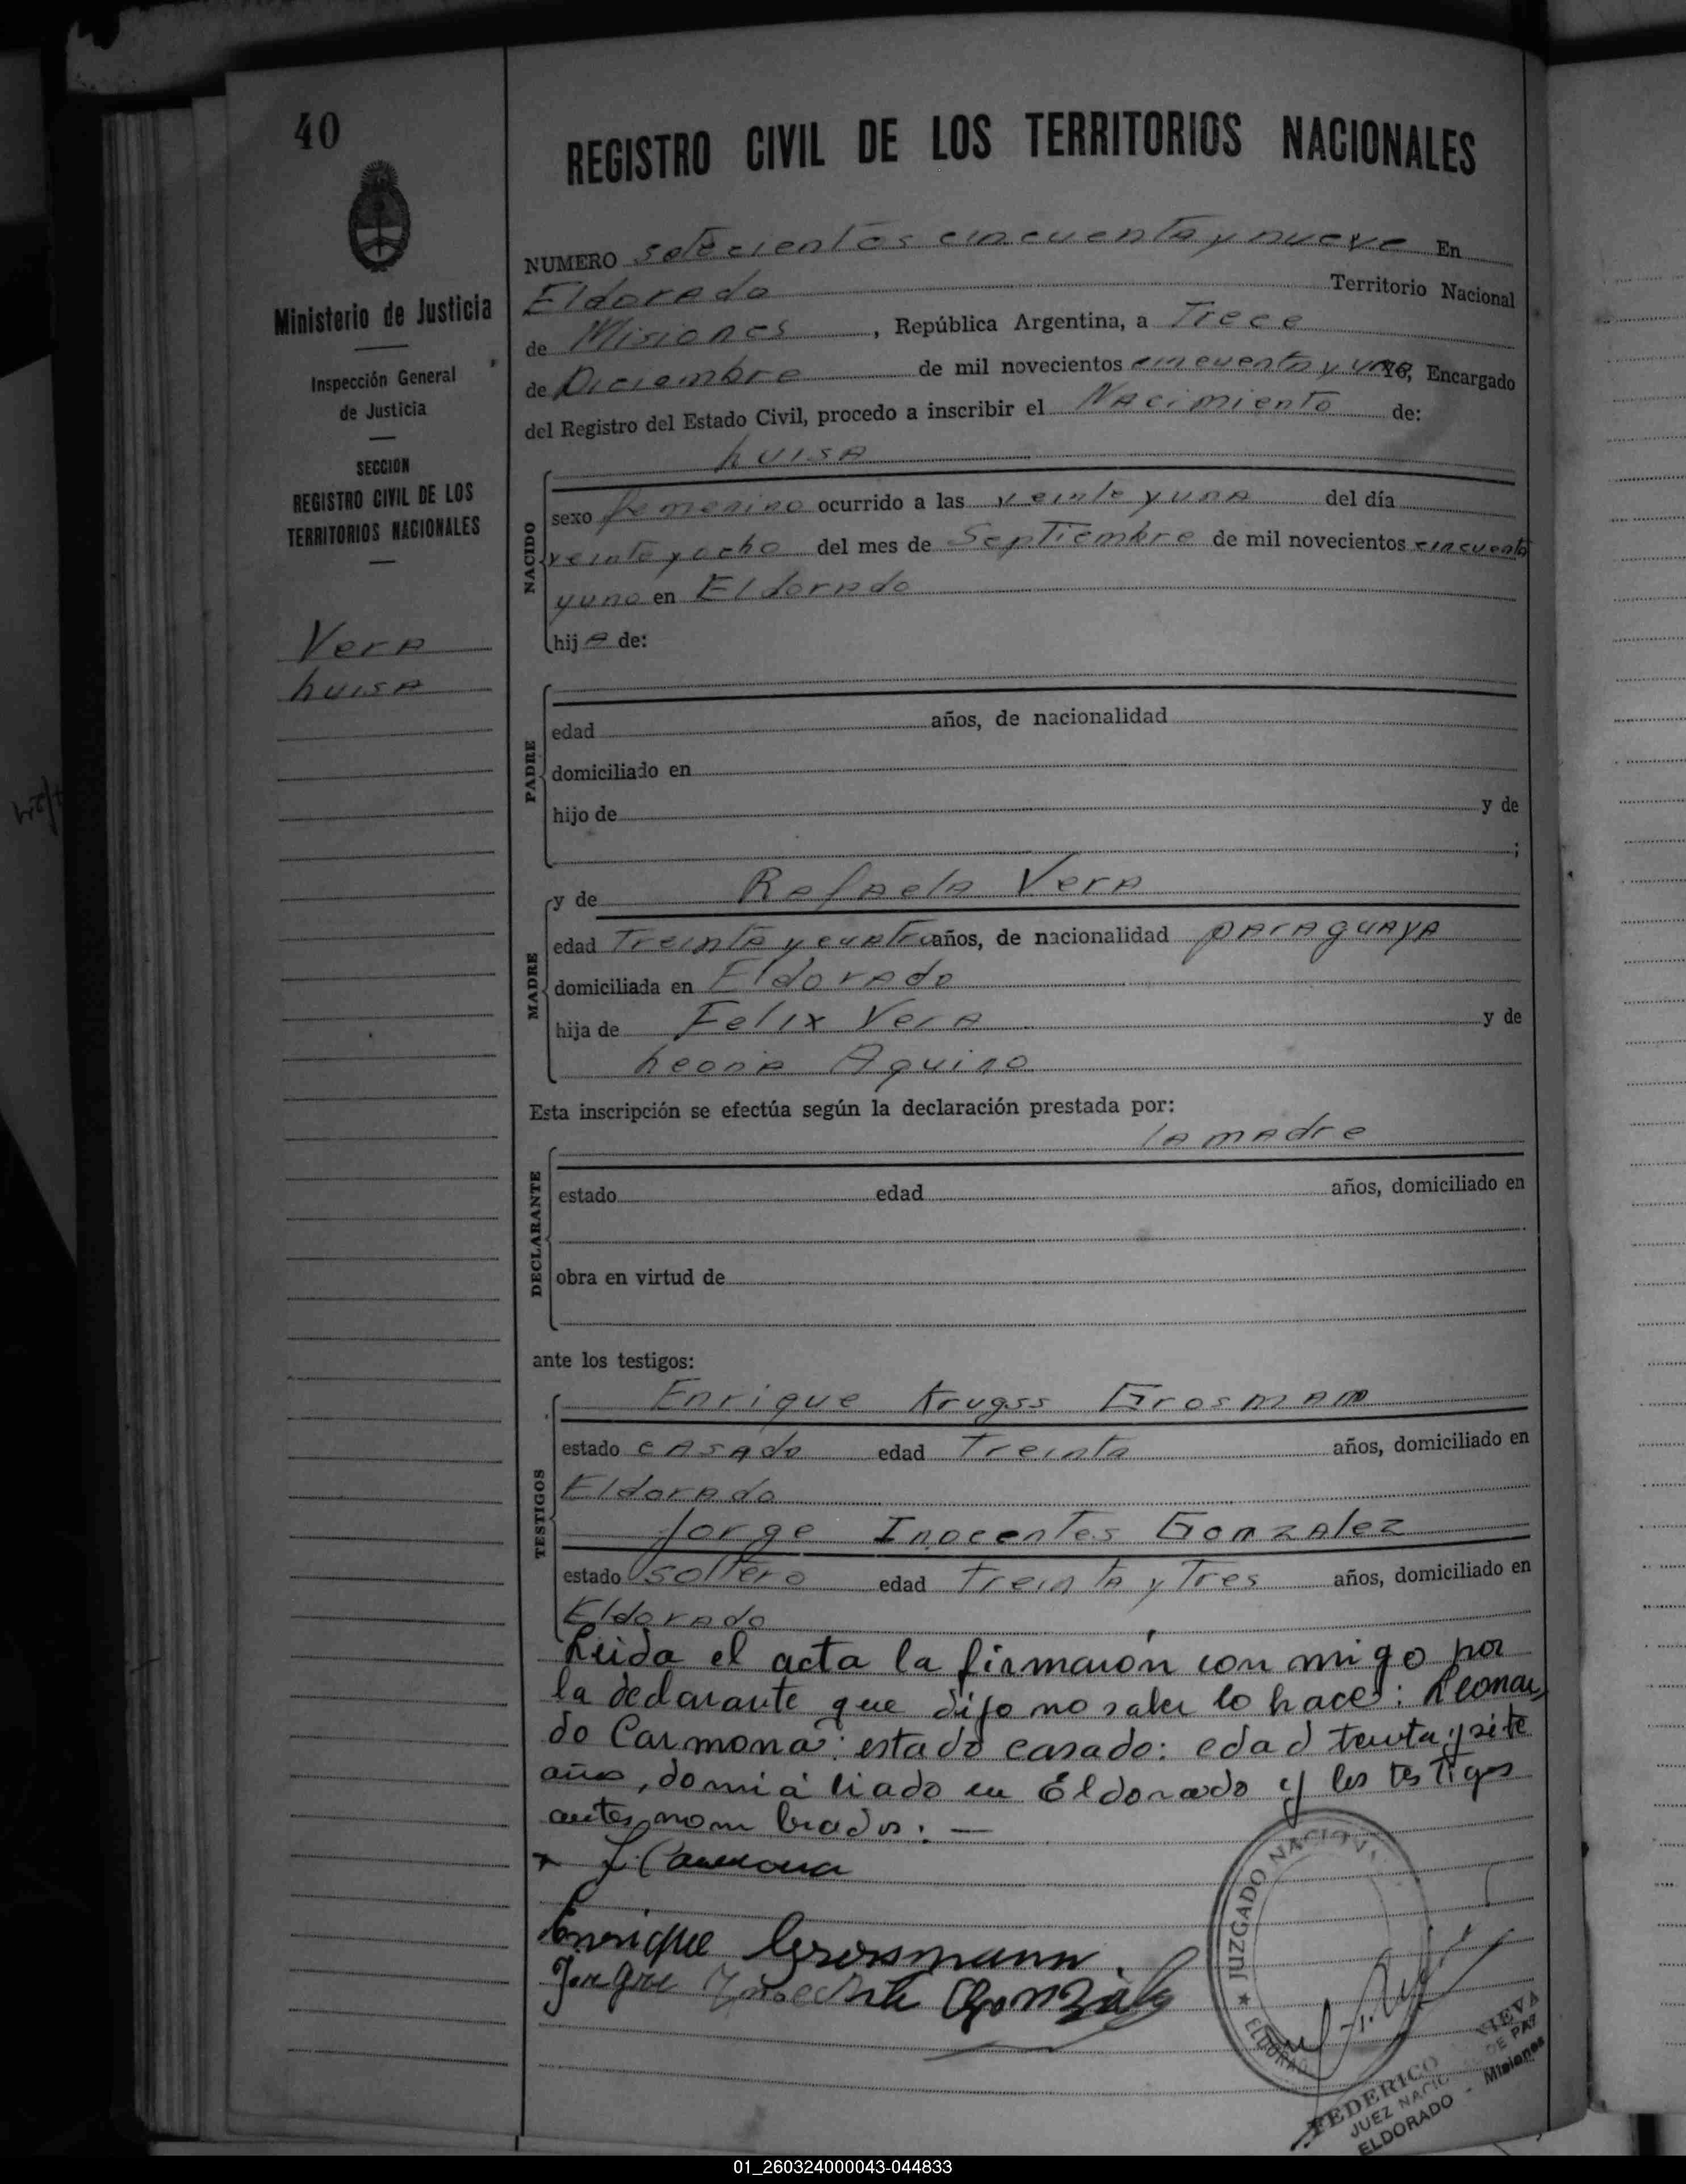 40
REGISTRO CIVIL DE LOS TERRITORIOS NACIONALES
Ministerio de Justicia
Inspección General
de Justicia
SECCION
REGISTRO CIVIL DE LOS
TERRITORIOS NACIONALES
Vera
Luisa
NUMERO setecientos cincuenta y nueve En
Eldorado Territorio Nacional
de Misiones, República Argentina, a Trece
de Diciembre de mil novecientos cincuenta y uno Yo, Encargado
del Registro del Estado Civil, procedo a inscribir el Nacimiento de:
Luisa
NACIDO
sexo femenino ocurrido a las veinte y una del día
veinte y ocho del mes de Septiembre de mil novecientos cincuenta
y uno en Eldorado
hija de:
PADRE
edad años, de nacionalidad
domiciliado en
hijo de y de
;
MADRE
y de Rafaela Vera
edad Treinta y cuatro años, de nacionalidad paraguaya
domiciliada en Eldorado
hija de Felix Vera y de
Leona Aquino
Esta inscripción se efectúa según la declaración prestada por:
la madre
DECLARANTE
estado edad años, domiciliado en
obra en virtud de
ante los testigos:
TESTIGOS
Enrique Krugss Grosmann
estado casado edad Treinta años, domiciliado en
Eldorado
Jorge Inocentes Gonzalez
estado soltero edad Treinta y Tres años, domiciliado en
Eldorado
Leida el acta la firmaron con migo por
la declarante que dijo no saber lo hace: Leonar
do Carmona: estado casado: edad treinta y siete
años, domiciliado en Eldorado y los testigos
antes nombrados: —
L. Carmona
Enrique Grossmann
Jorge Gonzalez
JUZGADO NACION
★ ELDORADO
FEDERICO VIEVA
JUEZ NACIO DE PAZ
ELDORADO - Misiones
01_260324000043-044833